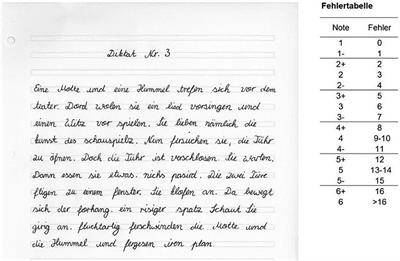 Diktat Nr. 3
Eine Motte und eine Hummel trefen sich vor dem
teater. Dord wolen sie ein lied vorsingen und
einen Witz vor spielen. Sie lieben nämlich die
kunst des schauspielz. Nun fersuchen sie, die Tühr
zu öfnen. Doch die Tühr ist verschlosen. Sie warten.
Dann essen sie etwas. nichs pasird. Die zwei Tire
fligen zu einem fenster. Sie klofen an. Da bewegt
sich der forhang. ein risiger spatz Schaut Sie
girig an. fluchtartig ferschwinden die Motte und
die Hummel und fergesen iren plan.
Fehlertabelle
Note Fehler
1 0
1- 1
2+ 2
2 3
2- 4
3+ 5
3 6
3- 7
4+ 8
4 9-10
4- 11
5+ 12
5 13-14
5- 15
6+ 16
6 >16